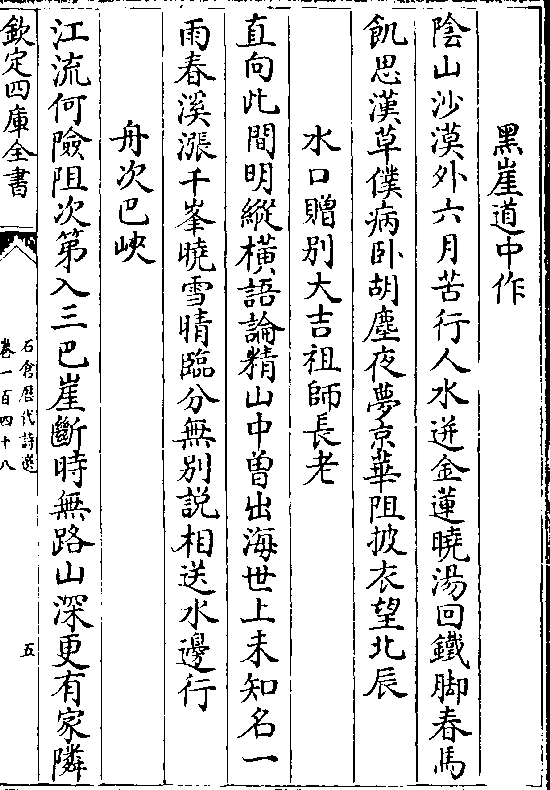 黑崖道中作
陰山沙漠外六月苦行人水迸金蓮曉湯回鐵脚春馬
飢思漢草僕病卧胡塵夜夢京華阻披衣望北辰
水口贈别大吉祖師長老
直向此間明縱橫語論精山中曽出海世上未知名一
雨春溪漲千峯曉雪晴臨分無别說相送水邊行
舟次巴峽
江流何險阻次第入三巴崖斷時無路山深更有家隣
欽定四庫全書
石倉歴代詩選
卷一百四十八
五